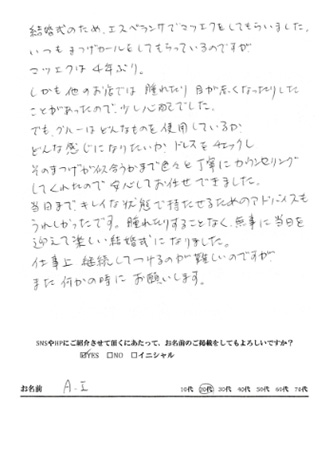 結婚式のため、エスペランサでマツエクをしてもらいました。
いつもまつげカールをしてもらっているのですが
マツエクは4年ぶり。
しかも他のお店では腫れたり目が赤くなったりした
ことがあったので、少し心配でした。
でも、グルーはどんなものを使用しているか、
どんな感じになりたいか、ドレスをチェックし
そのまつげが似合うかまで色々と丁寧にカウンセリング
してくれたので安心してお任せできました。
当日まで、キレイな状態で持たせるためのアドバイスも
うれしかったです。腫れたりすることなく、無事に当日を
迎えて楽しい結婚式になりました。
仕事上継続してつけるのが難しいのですが
また何かの時にお願いします。
SNSやHPにご紹介させて頂くにあたって、お名前のご掲載をしてもよろしいですか？
☑YES □NO □イニシャル
お名前 A.I 10代 20代 30代 40代 50代 60代 70代